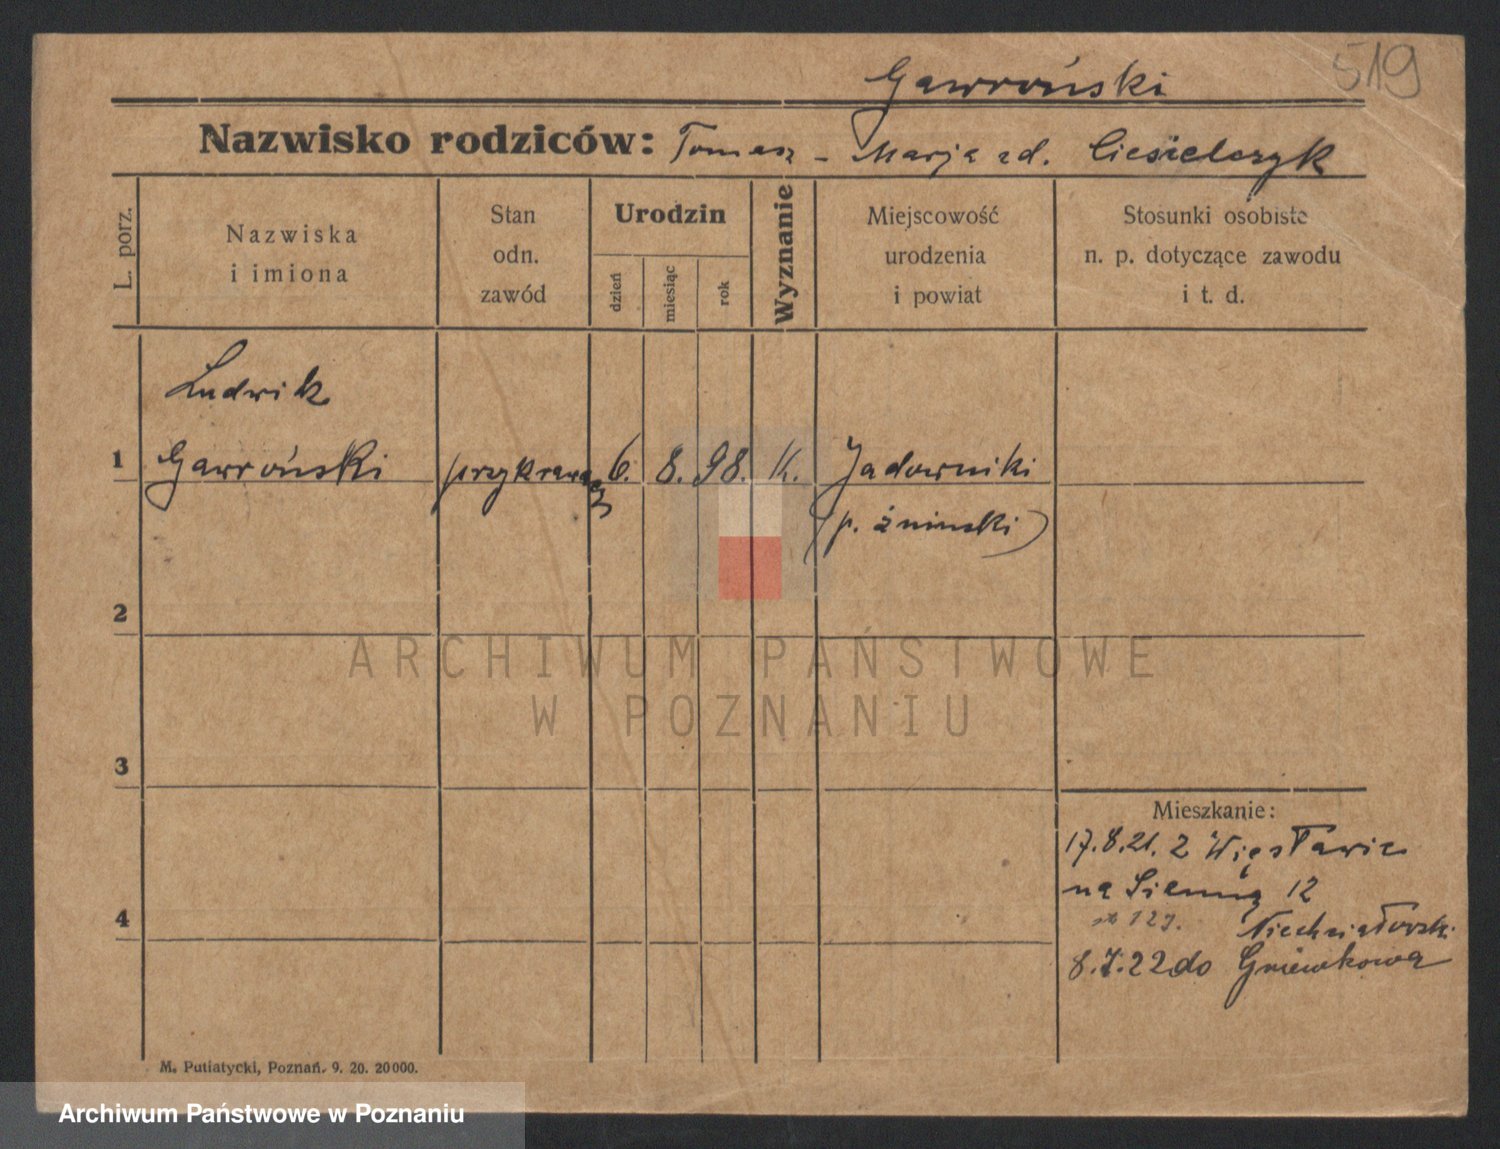 519
Gawroński
Nazwisko rodziców: Tomasz - Marja zd. Ciesielczyk
L. porz.
Nazwiska
i imiona
Stan
odn.
zawód
Urodzin
dzień
miesiąc
rok
Wyznanie
Miejscowość
urodzenia
i powiat
Stosunki osobiste
n. p. dotyczące zawodu
i t. d.
Ludwik
1 Gawroński przykrawacz 6. 8. 98. K. Jadowniki
(p. żniński)
2
ARCHIWUM PAŃSTWOWE
W POZNANIU
3
Mieszkanie:
17.8.21. z Więsławic
na Sienną 12
4
8.7.22 do Gniewkowa
M. Putiatycki, Poznań. 9. 20. 20000.
Archiwum Państwowe w Poznaniu